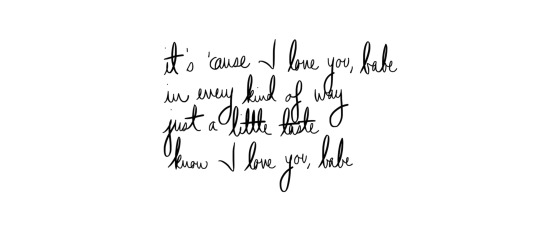 it's 'cause I love you, babe
in every kind of way
just a little taste
know I love you, babe